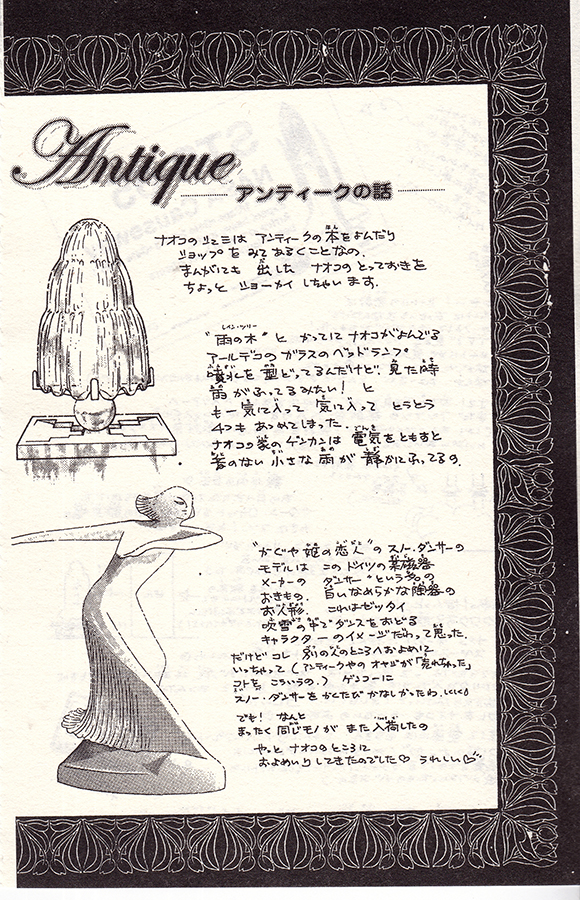 Antique
アンティークの話
ナオコのシュミは アンティークの本をよんだり
ショップを みてあるくことなの.
まんがにも 出した ナオコのとっておきを
ちょっと ショーカイ しちゃいます.
レイン・ツリー
"雨の木" と かってに ナオコがよんでる
アールデコの ガラスのベッドランプ
噴水を 型どってるんだけど 見た時
雨が ふってるみたい! と
も一気に入って 気に入って とうとう
4つも あつめてしまった.
ナオコの家のゲンカンは 電気をともすと
音のない 小さな 雨が 静かにふってるの.
"かぐや姫の恋人" の スノー・ダンサーの
モデルは この ドイツの 某磁器
メーカーの "ダンサー" という名の
おきもの. 白いなめらかな陶器の
お人形. これはゼッタイ
吹雪の中で ダンスをおどる
キャラクターのイメージだわって思った.
だけど コレ 別の人のところへおよめに
いっちゃって (アンティークやの オヤジが「売れちゃった」
コトを こういうの.) ゲンコーに
スノー・ダンサーを かくたび かなしかったわ.しくしく
でも! なんと
まったく 同じモノが また 入荷したの
やっと ナオコのところに
およめいりしてきたのでした♡ うれしい♡